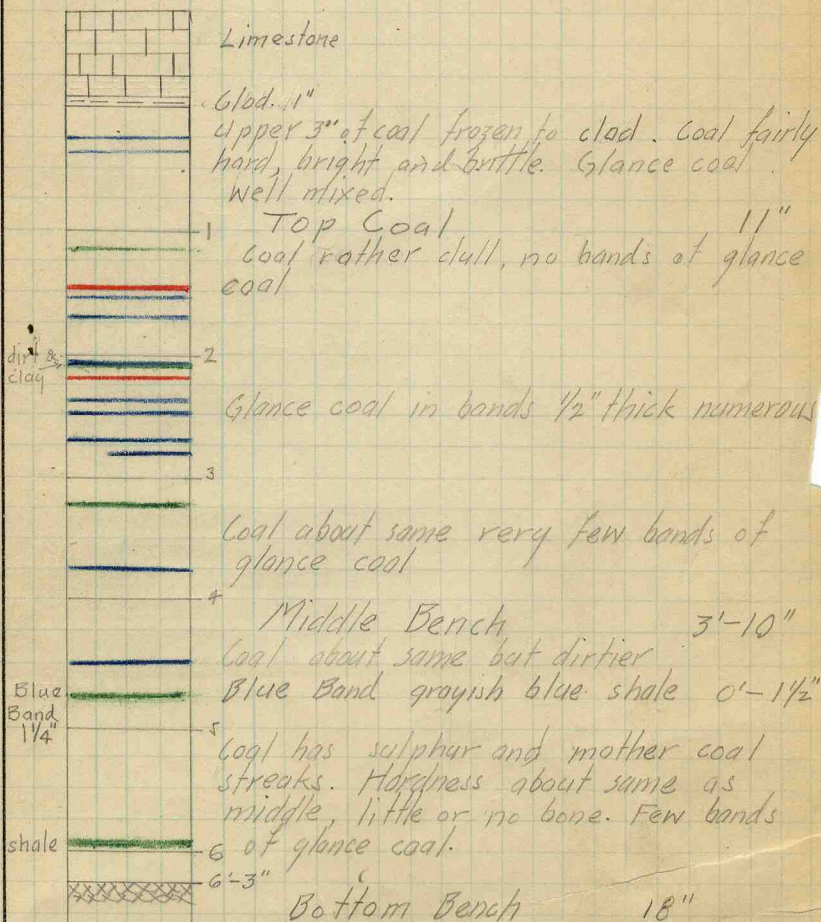 Limestone
Clod. 1"
Upper 3" of coal frozen to clod. Coal fairly
hard, bright and brittle. Glance coal
well mixed.
1
Top Coal 11"
Coal rather dull, no bands of glance
coal
2
dirt &
clay
Glance coal in bands 1/2" thick numerous
3
Coal about same very few bands of
glance coal
4
Middle Bench 3'-10"
Coal about same but dirtier
Blue Band grayish blue shale 0'-1 1/2"
Blue
Band
1 1/4"
5
Coal has sulphur and mother coal
streaks. Hardness about same as
middle, little or no bone. Few bands
of glance coal.
shale
6
6'-3"
Bottom Bench 18"